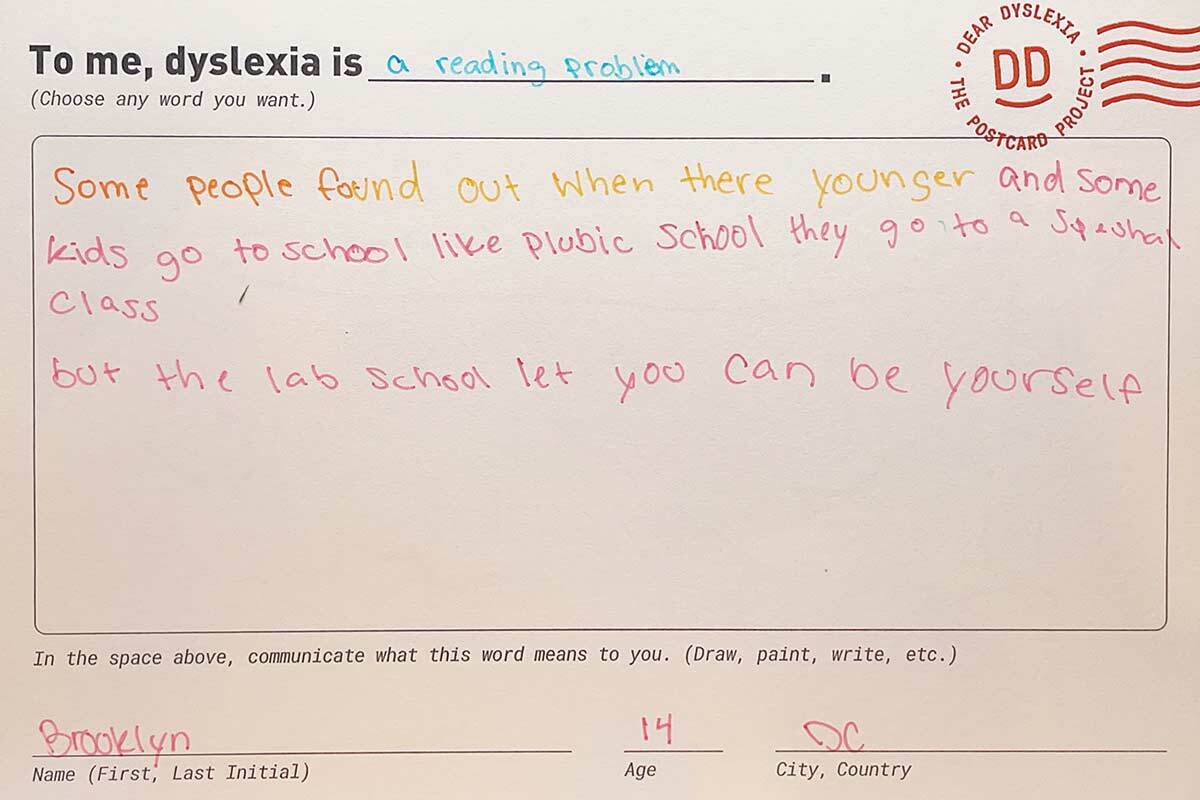 To me, dyslexia is a reading problem.
(Choose any word you want.)
DEAR DYSLEXIA
DD
THE POSTCARD PROJECT
Some people found out when there younger and some
kids go to school like plubic school they go to a speshal
class
but the lab school let you can be yourself
In the space above, communicate what this word means to you. (Draw, paint, write, etc.)
Brooklyn 14 DC
Name (First, Last Initial) Age City, Country